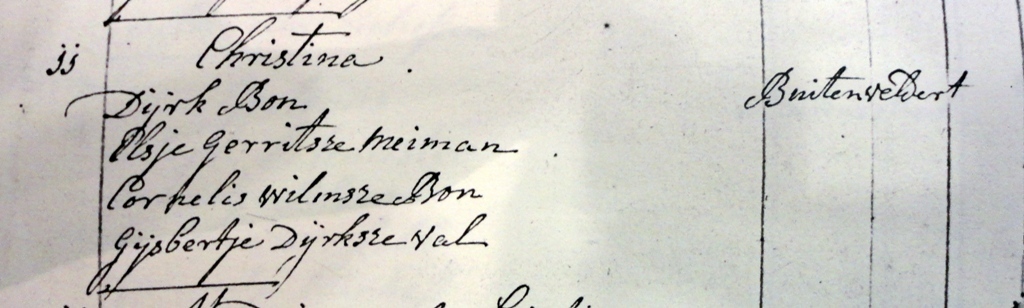 jj Christina.
Dijrk Bon Buitenveldert
Elsje Gerritsze Meiman
Cornelis Wilmsze Bon
Gijsbertje Dijrksze Val